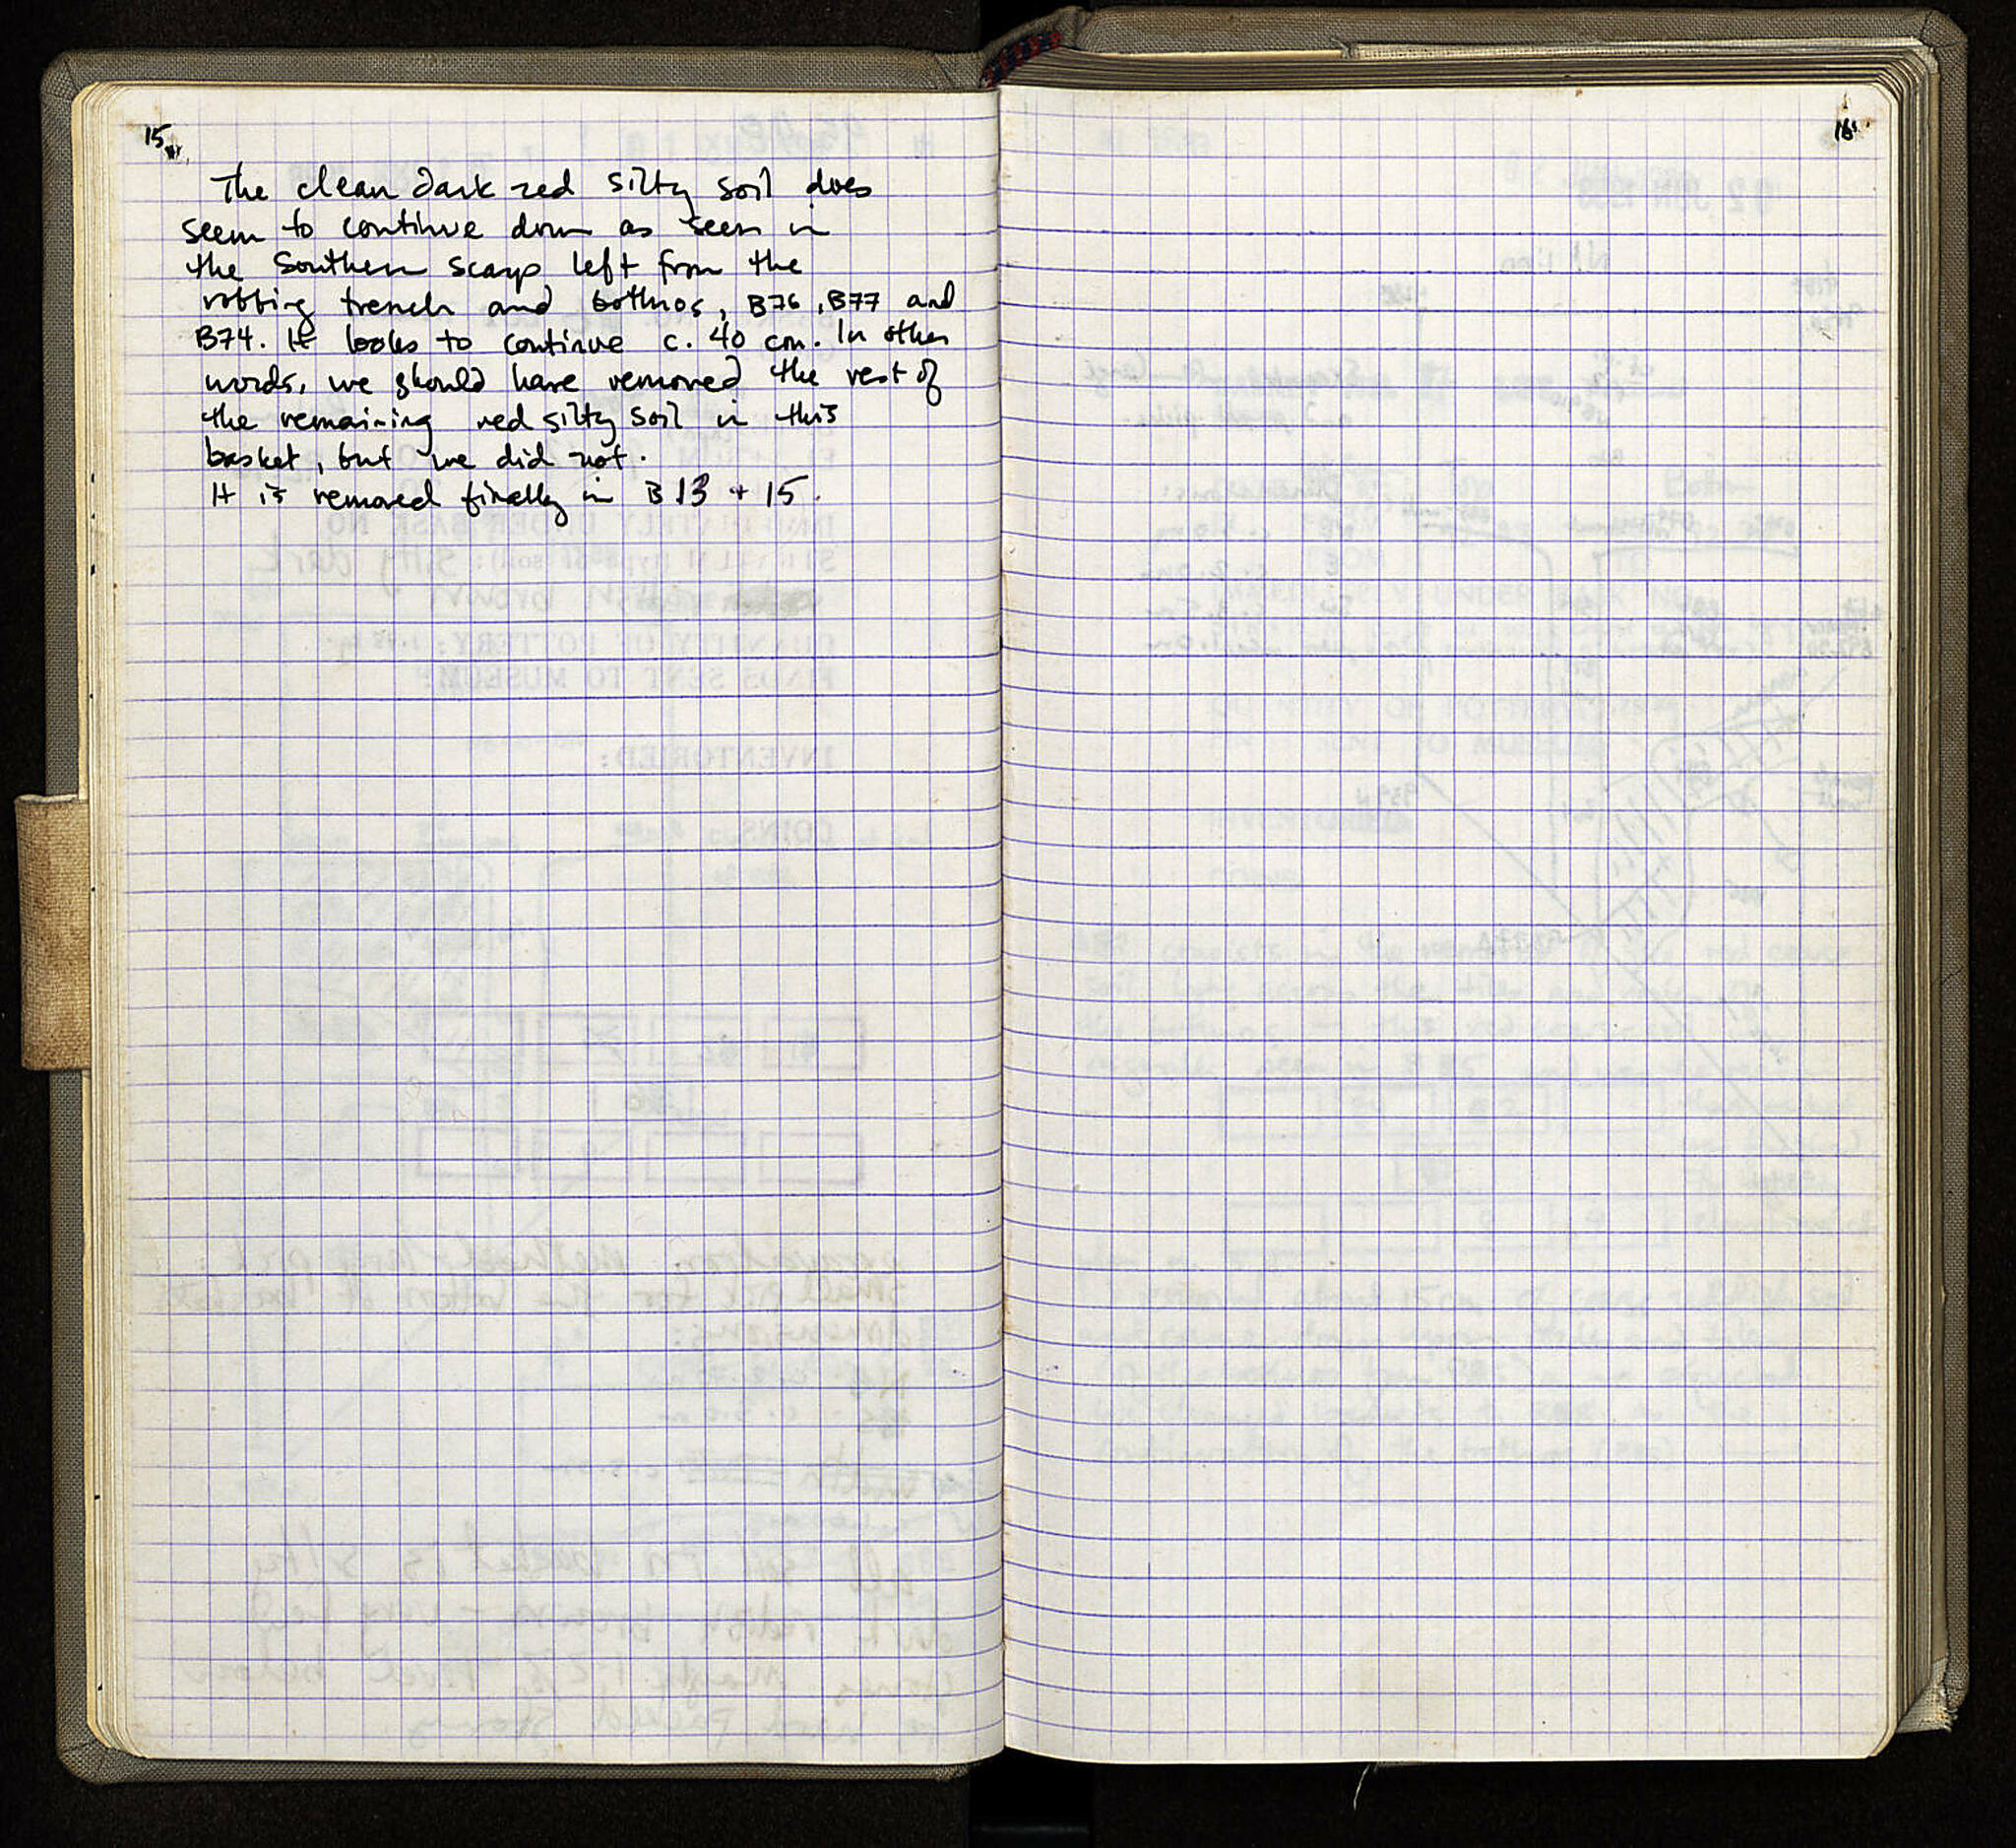 15
The clean dark red silty soil does
seem to continue down as seen in
the Southern scarp left from the
robbing trench and bothros, B76, B77 and
B74. It looks to continue c. 40 cm. In other
words, we should have removed the rest of
the remaining red silty soil in this
basket, but we did not.
It is removed finally in B 13 + 15.
16